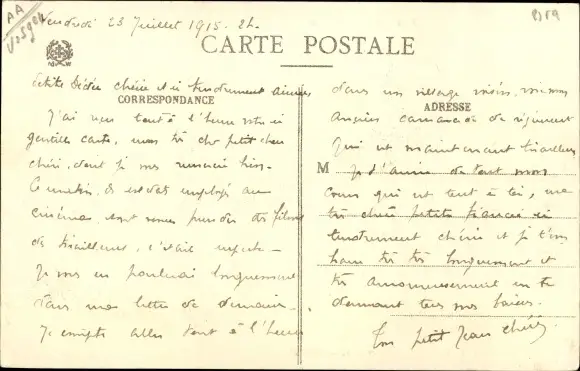 AA
Vosges
Vendredi 23 Juillet 1915. 2h.
CARTE POSTALE
petite Dédée chérie et si tendrement aimée
CORRESPONDANCE
J'ai reçu tout à l'heure votre si
gentille carte, mon tr cher petit chou
chéri, dont je vous remercie bien.
Ce matin, des soldats employé au
cinéma sont venus prendre des films
de tirailleurs, c'était
Je vous en parlerai longuement
dans ma lettre de demain.
Je compte aller tout à l'heure
dans un village voisin, voir mes
ADRESSE
Anciens camarades de régiment
qui est maintenant tirailleur
M
Je t'aime de tout mon
cœur qui est tout à toi, ma
très chère petite fiancée si
tendrement chérie et je t'em
très très longuement et
très amoureusement en te
donnant tous mes baisers.
Ton petit Jean chéri